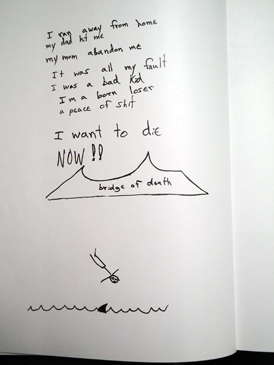 I ran away from home
my dad hit me
my mom abandon me
It was all my fault
I was a bad kid
I'm a born loser
a peace of shit
I want to die
NOW!!
bridge of death